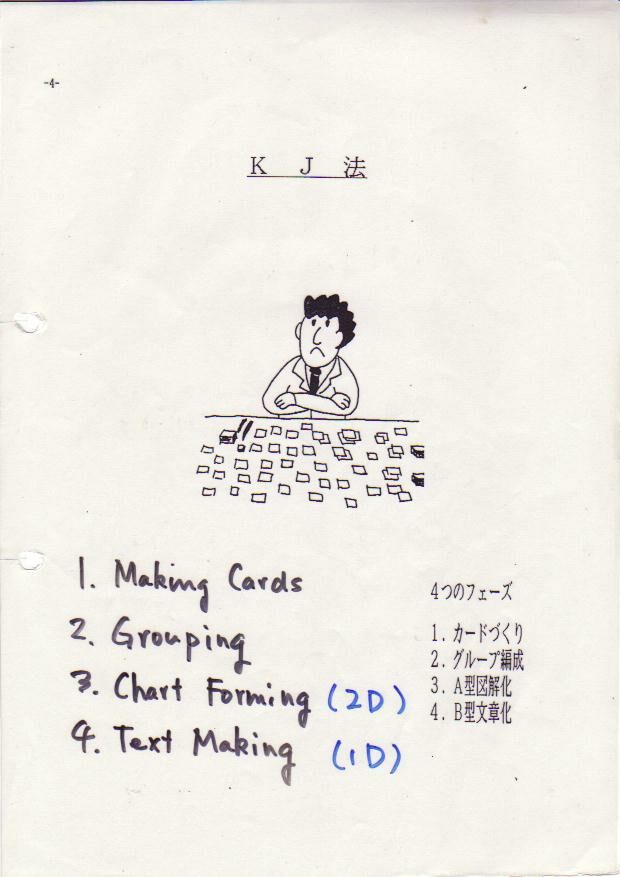 -4-
KJ法
1. Making Cards
2. Grouping
3. Chart Forming (2D)
4. Text Making (1D)
4つのフェーズ
1. カードづくり
2. グループ編成
3. A型図解化
4. B型文章化